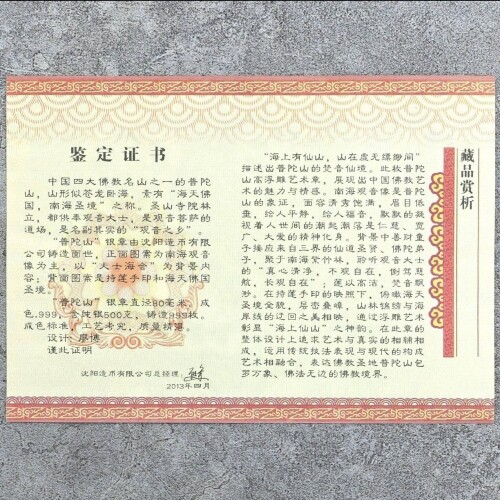 鉴定证书
中国四大佛教名山之一的普陀
山，山形似苍龙卧海，素有“海天佛
国，南海圣境”之称。圣山寺院林
立，都供奉观音大士，是观音菩萨的
道场，是名副其实的“观音之乡”。
“普陀山”银章由沈阳造币有限
公司铸造面世，正面图案为南海观音
像为主，以“大士海会”为背景内
容；背面图案是持莲手印和海天佛国
圣境。
“普陀山”银章直径80毫米，成
色.999，含纯银500克，铸造999枚。
成色标准，工艺考究，质量精湛。
设计：廖博
谨此证明
沈阳造币有限公司总经理：
2013年四月
藏品赏析
“海上有仙山，山在虚无缥缈间”
描述出普陀山的梵音仙境。此枚普陀
山高浮雕艺术章，展现出中国佛教艺
术的魅力与情感。南海观音像是普陀
山的象征，面容清秀饱满，眉目低
垂，给人平静，给人福音，默默的凝
视着人世间的潮起潮落是仁慈、宽
广、大爱的精神化身。背景中善财童
子揍应来自三界的仙道圣贤、佛陀弟
子，聚于南海紫竹林，聆听观音大士
的“真心清净，不观自在，倒驾慈
航，长观自在”；莲以高洁，梵音飘
渺。在持莲手印的映照下，俯瞰海天
圣境全貌，层峦叠嶂，山林锦绣与海
岸线的迂回之美相映，通过浮雕艺术
彰显“海上仙山”之神韵。在此章的
整体设计上追求艺术与真实的相辅相
成，运用传统技法表现与现代的构成
艺术相融合，表达佛教圣地普陀山包
罗万象、佛法无边的佛教境界。